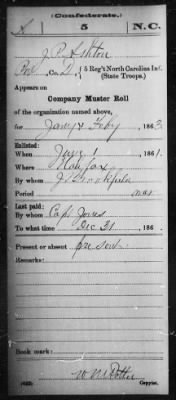 (Confederate.)
A 5 N.C.
J. P. Ashton
Co. D, 5 Reg't North Carolina Inf.
(State Troops.)
Appears on
Company Muster Roll
of the organization named above,
for Jany & Feby, 1863.
Enlisted:
When July 1, 1861.
Where Halifax
By whom
Period war
Last paid:
By whom Capt Jones
To what time Dec 31, 186 .
Present or absent Present
Remarks:
Book mark:
W M Potter
(642) Copyist.